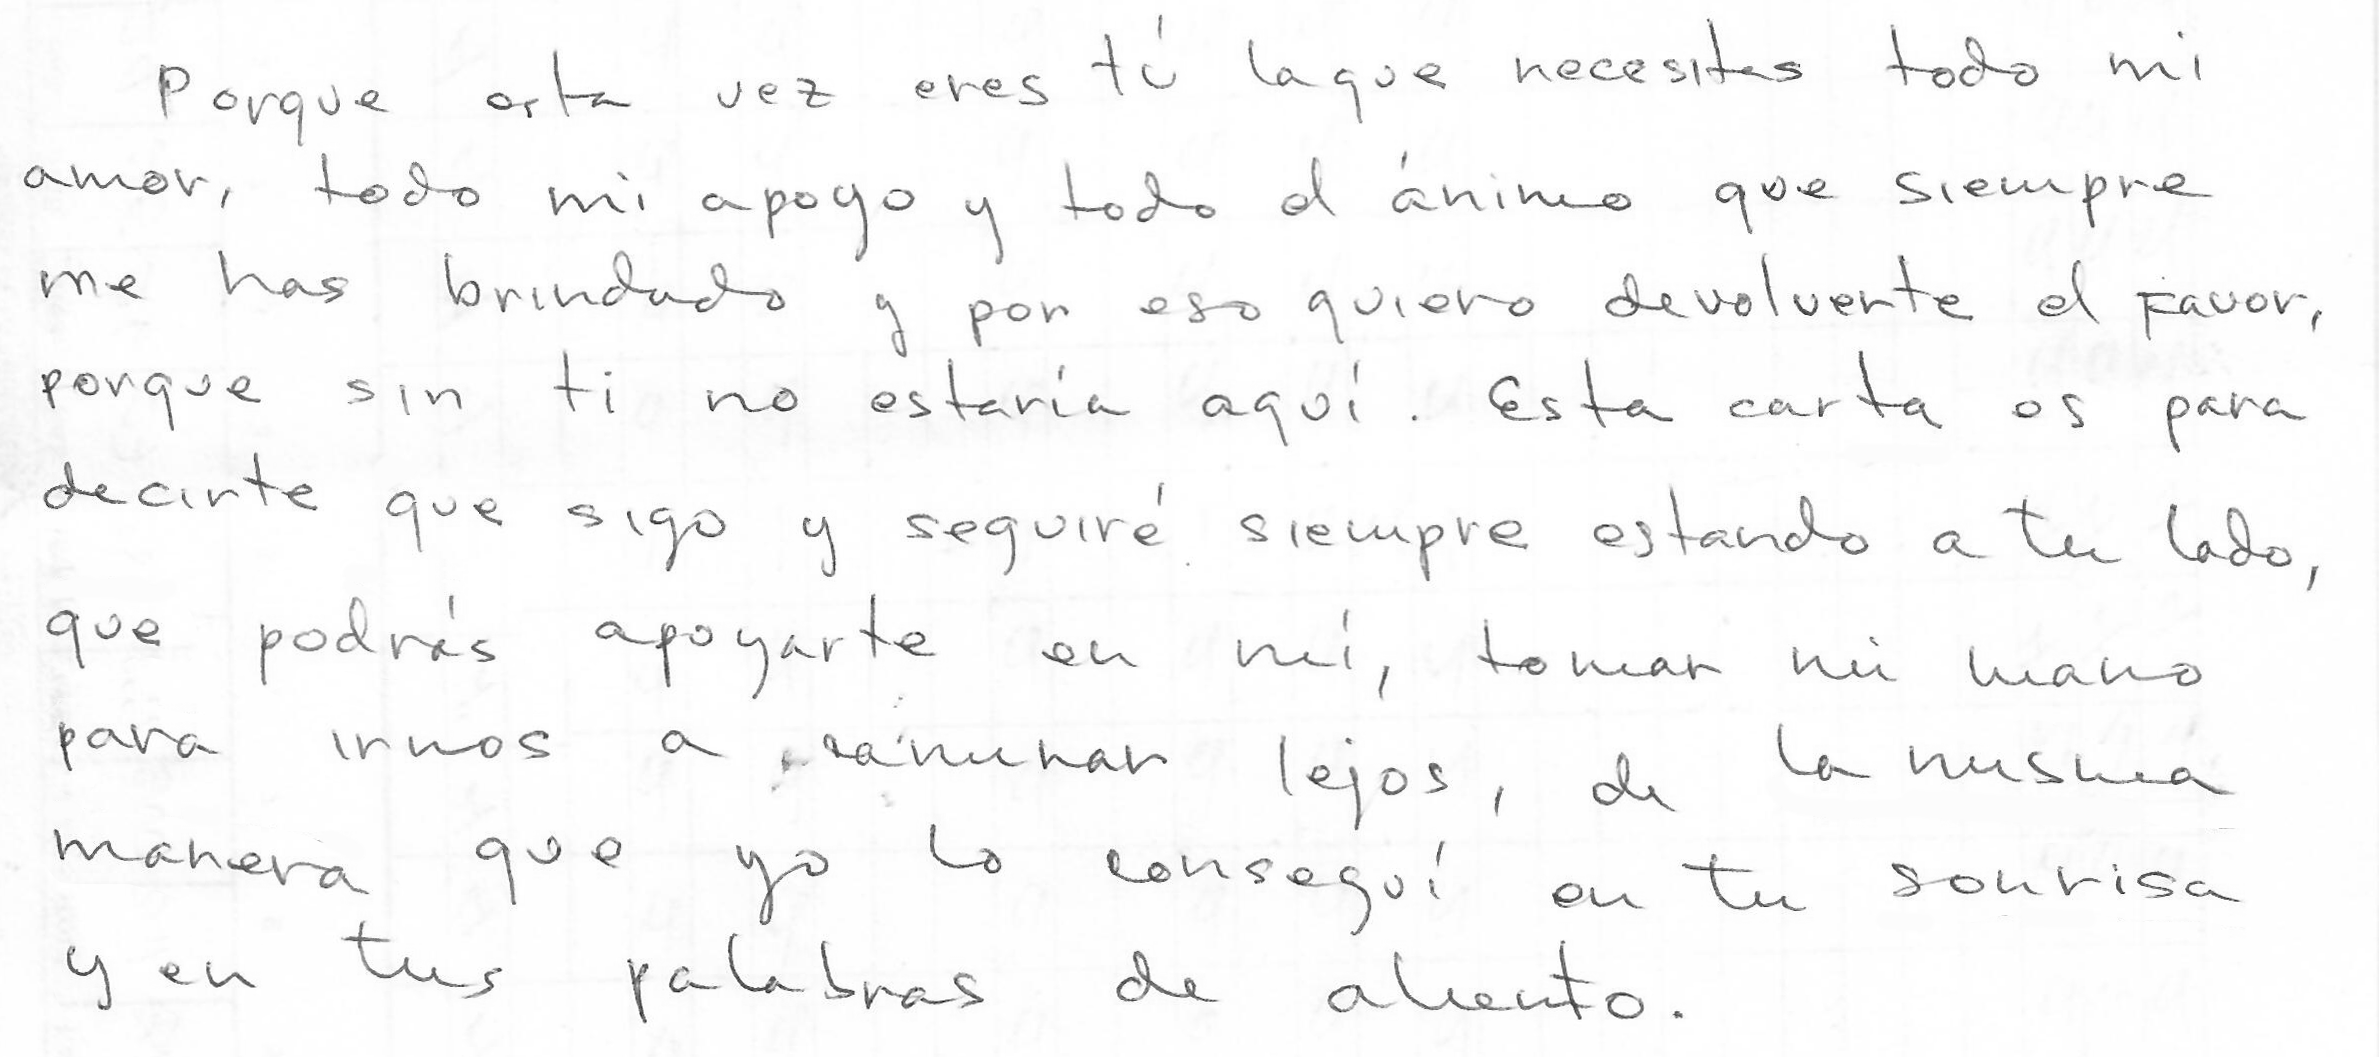 Porque esta vez eres tú la que necesitas todo mi
amor, todo mi apoyo y todo el ánimo que siempre
me has brindado y por eso quiero devolverte el favor,
porque sin ti no estaría aquí. Esta carta es para
decirte que sigo y seguiré siempre estando a tu lado,
que podrás apoyarte en mí, tomar mi mano
para irnos a caminar lejos, de la misma
manera que yo lo conseguí en tu sonrisa
y en tus palabras de aliento.